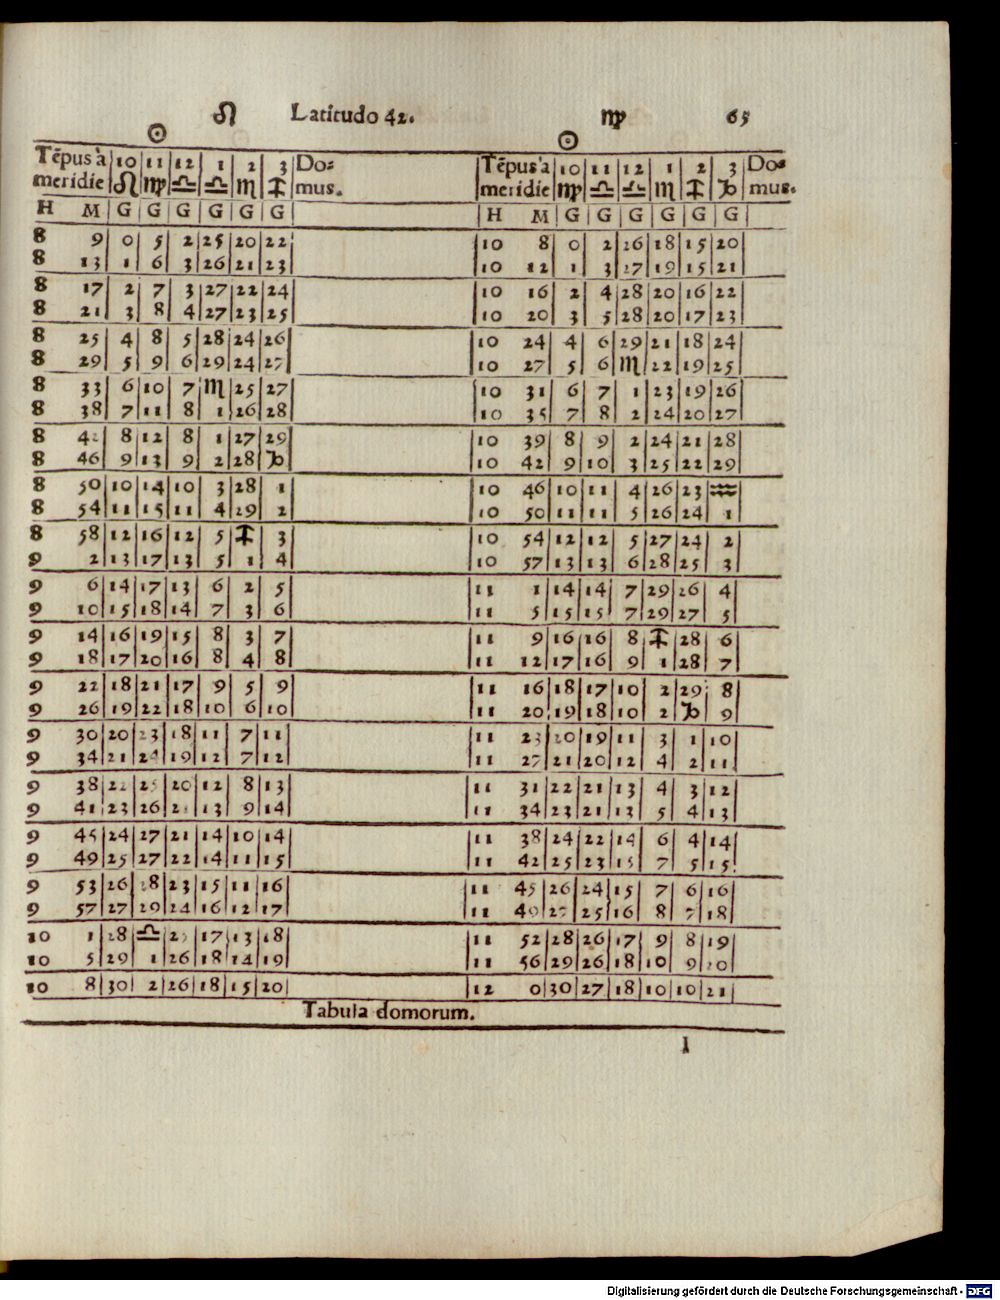 ♌ Latitudo 42. ♍ 65
☉ ☉
Tẽpus à 10 11 12 1 2 3 Do⸗ Tẽpus à 10 11 12 1 2 3 Do⸗
meridie ♌ ♍ ♎ ♎ ♏ ♐ mus. meridie ♍ ♎ ♎ ♏ ♐ ♑ mus.
H M G G G G G G H M G G G G G G
8 9 0 5 2 25 20 22 10 8 0 2 26 18 15 20
8 13 1 6 3 26 21 23 10 12 1 3 27 19 15 21
8 17 2 7 3 27 22 24 10 16 2 4 28 20 16 22
8 21 3 8 4 27 23 25 10 20 3 5 28 20 17 23
8 25 4 8 5 28 24 26 10 24 4 6 29 21 18 24
8 29 5 9 6 29 24 27 10 27 5 6 ♏ 22 19 25
8 33 6 10 7 ♏ 25 27 10 31 6 7 1 23 19 26
8 38 7 11 8 1 26 28 10 35 7 8 2 24 20 27
8 42 8 12 8 1 27 29 10 39 8 9 2 24 21 28
8 46 9 13 9 2 28 ♑ 10 42 9 10 3 25 22 29
8 50 10 14 10 3 28 1 10 46 10 11 4 26 23 ♒
8 54 11 15 11 4 29 2 10 50 11 11 5 26 24 1
8 58 12 16 12 5 ♐ 3 10 54 12 12 5 27 24 2
9 2 13 17 13 5 1 4 10 57 13 13 6 28 25 3
9 6 14 17 13 6 2 5 11 1 14 14 7 29 26 4
9 10 15 18 14 7 3 6 11 5 15 15 7 29 27 5
9 14 16 19 15 8 3 7 11 9 16 16 8 ♐ 28 6
9 18 17 20 16 8 4 8 11 12 17 16 9 1 28 7
9 22 18 21 17 9 5 9 11 16 18 17 10 2 29 8
9 26 19 22 18 10 6 10 11 20 19 18 10 2 ♑ 9
9 30 20 23 18 11 7 11 11 23 20 19 11 3 1 10
9 34 21 24 19 12 7 12 11 27 21 20 12 4 2 11
9 38 22 25 20 12 8 13 11 31 22 21 13 4 3 12
9 41 23 26 21 13 9 14 11 34 23 21 13 5 4 13
9 45 24 27 21 14 10 14 11 38 24 22 14 6 4 14
9 49 25 27 22 14 11 15 11 42 25 23 15 7 5 15
9 53 26 28 23 15 11 16 11 45 26 24 15 7 6 16
9 57 27 29 24 16 12 17 11 49 27 25 16 8 7 18
10 1 28 ♎ 25 17 13 18 11 52 28 26 17 9 8 19
10 5 29 1 26 18 14 19 11 56 29 26 18 10 9 20
10 8 30 2 26 18 15 20 12 0 30 27 18 10 10 21
Tabula domorum.
I
Digitalisierung gefördert durch die Deutsche Forschungsgemeinschaft - DFG